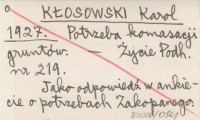 KŁOSOWSKI Karol
1927. Potrzeba komasacji
gruntów. — Życie Podh.
nr 219.
Jako odpowiedź w ankie-
cie o potrzebach Zakopanego.